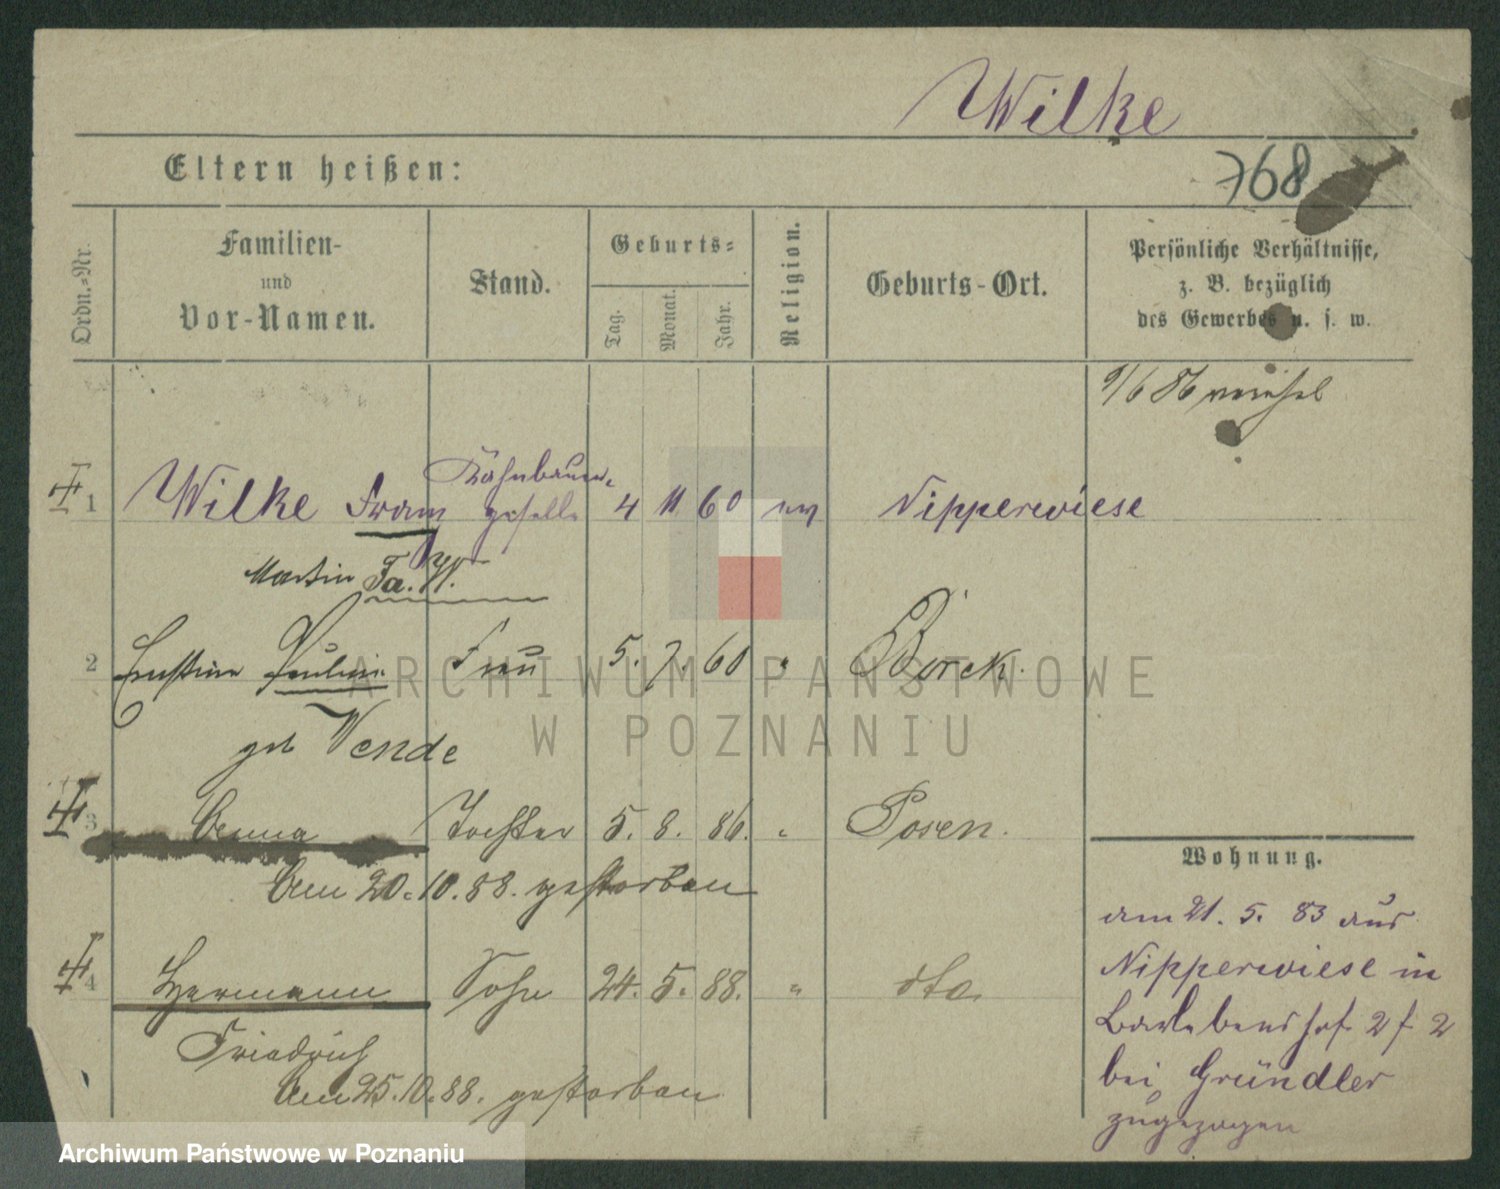 Wilke
768
Eltern heißen:
Ordn.-Nr.
Familien-
und
Vor-Namen.
Stand.
Geburts-
Tag.
Monat.
Jahr.
Religion.
Geburts-Ort.
Persönliche Verhältnisse,
z. B. bezüglich
des Gewerbes u. s. w.
9/6 86
1 Wilke Franz Kahnbauer- 4 11 60 ev Nipperwiese
geselle
Martin
2 Ernstine Paulin Frau 5. 7. 60 " Borek.
geb Wende
3 Anna Tochter 5. 8. 86. " Posen.
Am 20.10.88. gestorben
4 Hermann Sohn 24. 5. 88. " dto.
Friedrich
Am 25.10.88. gestorben
Wohnung.
am 21. 5. 83 aus
Nipperwiese in
Bartlebenshof 2 f 2
bei Gründler
zugezogen
ARCHIWUM PAŃSTWOWE
W POZNANIU
Archiwum Państwowe w Poznaniu